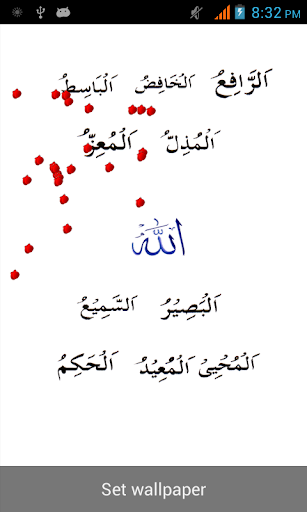 8:32 PM
اَلرَّافِعُ اَلْخَافِضُ اَلْبَاسِطُ
اَلْمُذِلُّ اَلْمُعِزُّ
اللّٰه
اَلْبَصِيْرُ اَلسَّمِيْعُ
اَلْمُحْيِىْ اَلْمُعِيْدُ اَلْحَكِمُ
Set wallpaper